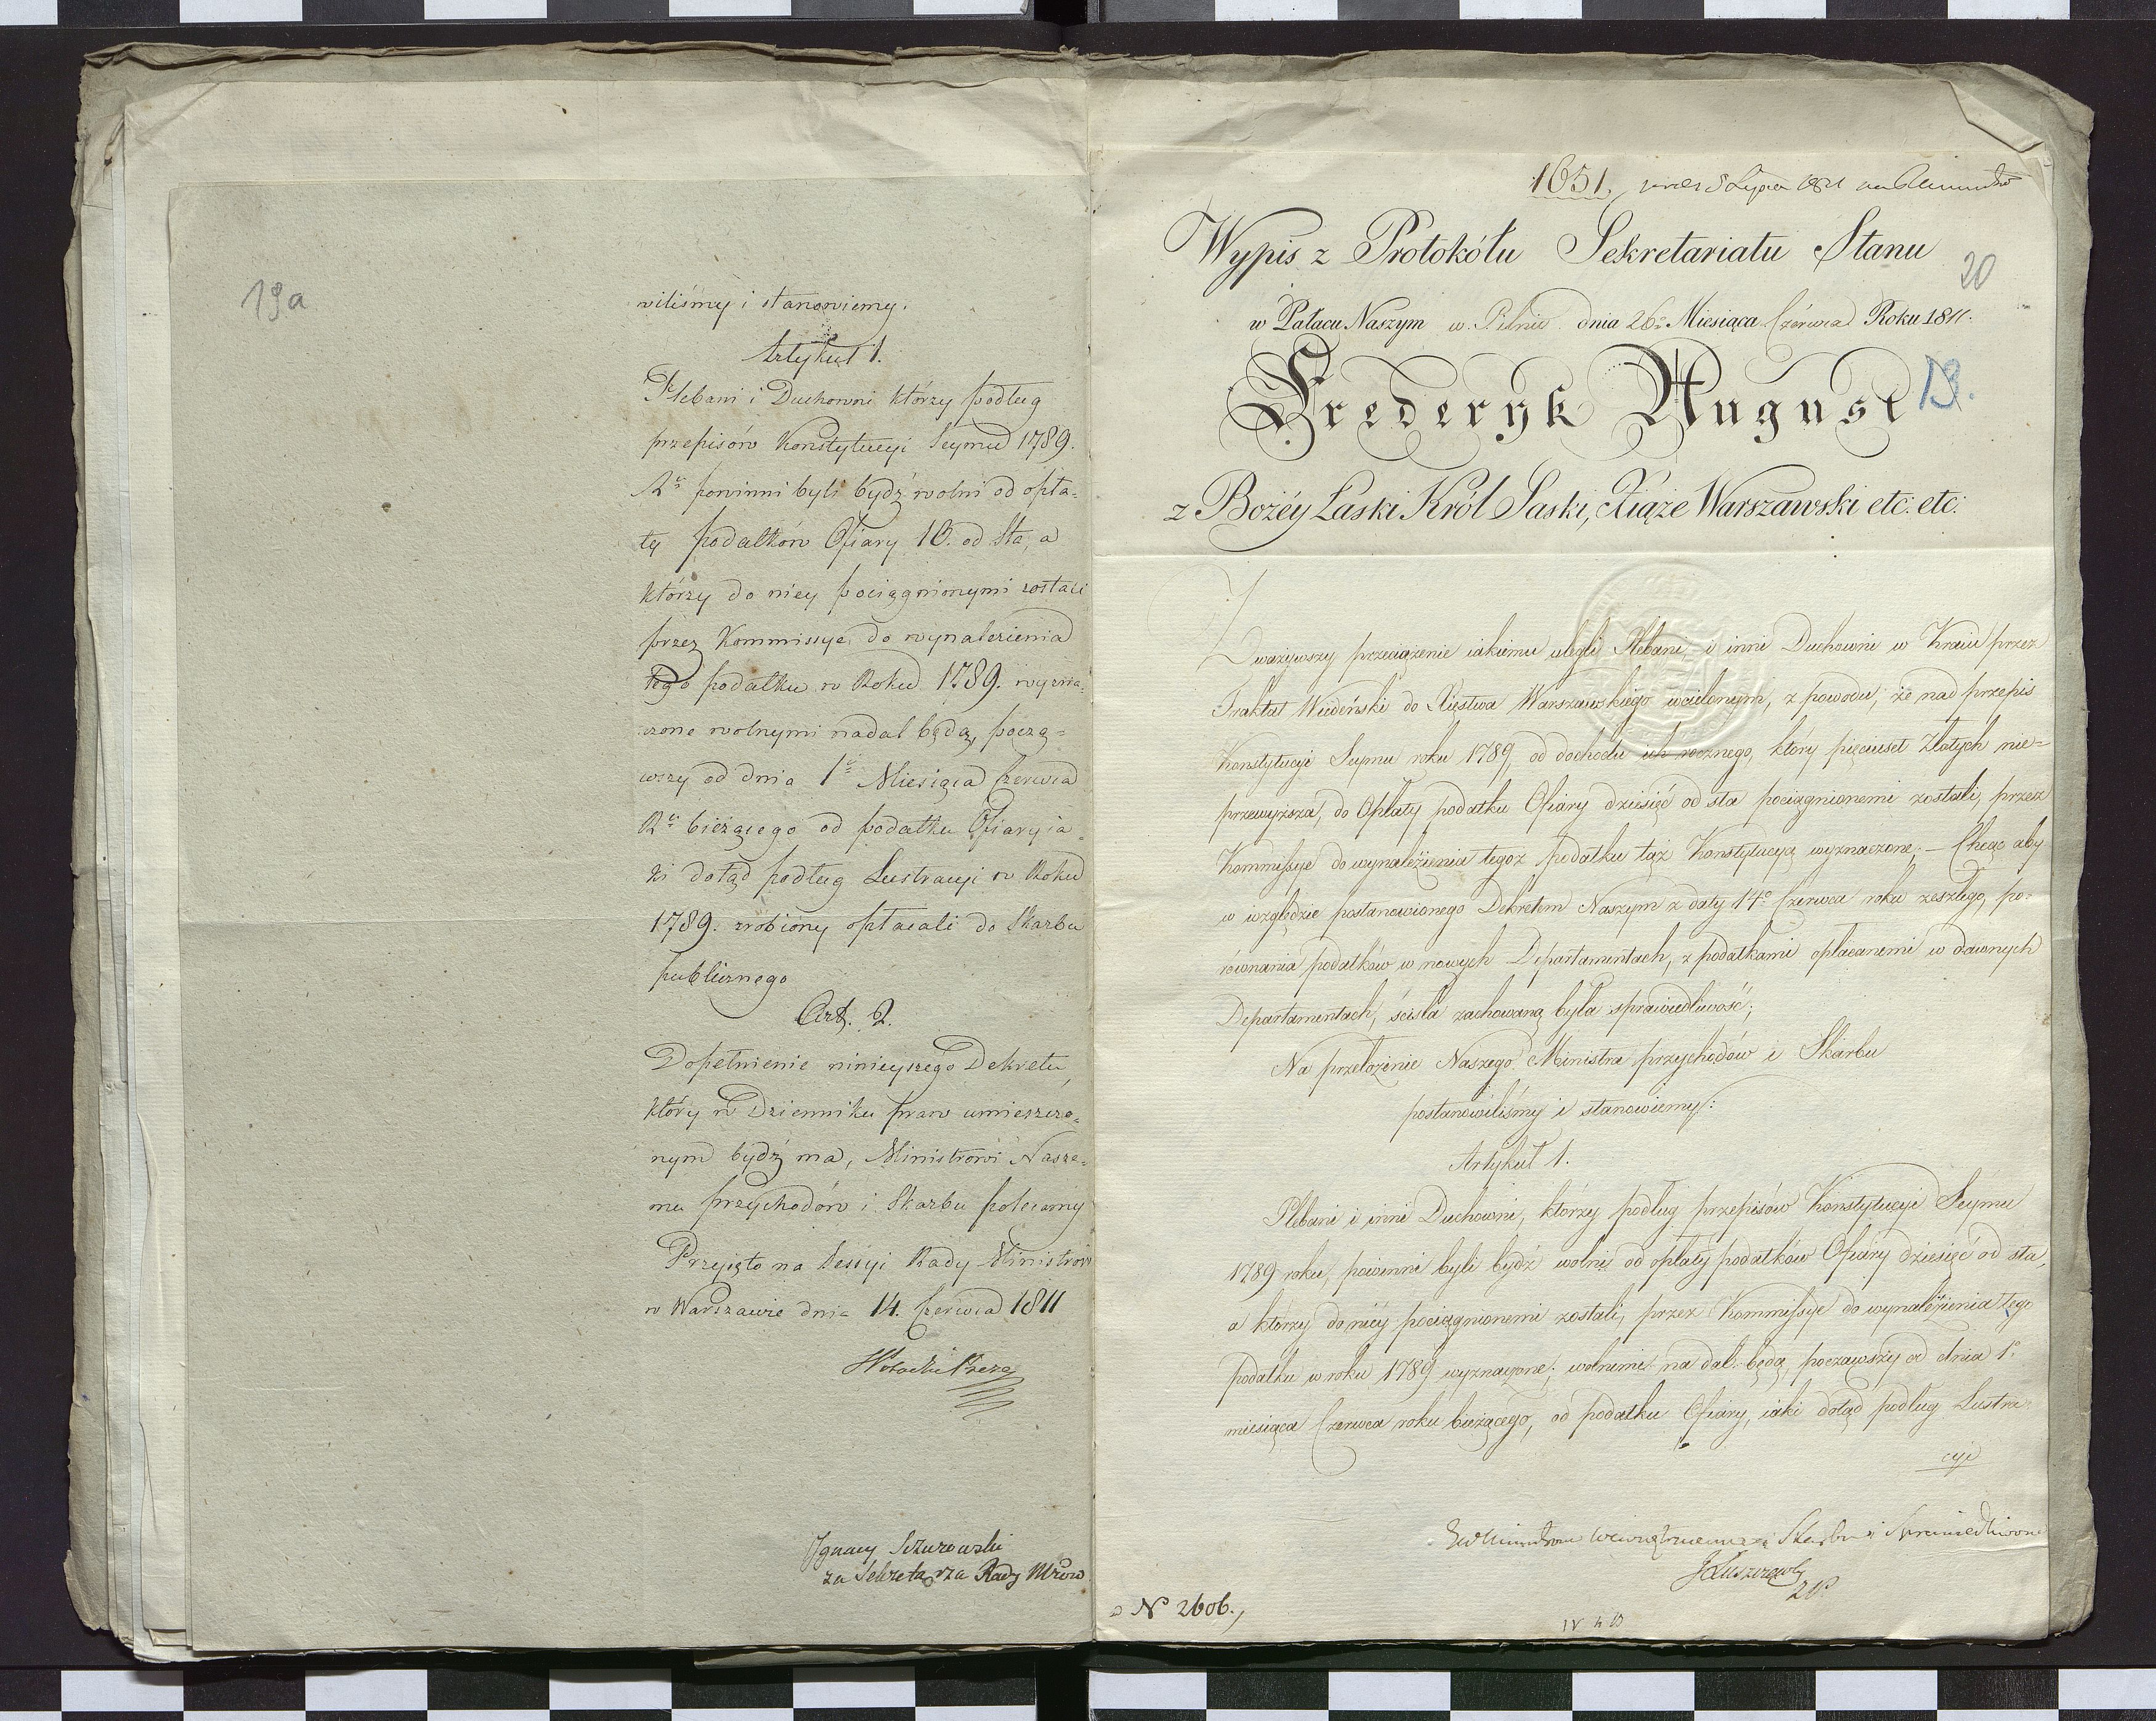 19a
wiliśmy i stanowiemy.
Artykuł 1.
Plebani i Duchowni którzy podług
przepisów Konstytucyi Seymu 1789.
Rº powinni byli bydź wolni od opła-
ty podatków Ofiary 10. od Sta, a
którzy do niey pociągnionymi zostali
przez Kommissye do wynalezienia
tego podatku w Roku 1789. wyzna-
czone wolnymi nadal będą, począ-
wszy od dnia 1º Miesiąca Czerwca
Rº bieżącego od podatku Ofiary ia-
ki dotąd podług Lustracyi w Roku
1789. zrobiony opłacali do Skarbu
publicznego
Art. 2.
Dopełnienie ninieyszego Dekretu,
który w Dzienniku praw umieszczo-
nym bydź ma, Ministrowi Nasze-
mu przychodów i Skarbu polecamy
Przyięto na Sessyi Rady Ministrów
w Warszawie dnia 14. Czerwca 1811
Ignacy
za Sekretarza Rady Mrów
1651.
Wypis z Protokółu Sekretariatu Stanu
20
w Pałacu Naszym w Pilnic dnia 26º Miesiąca Czerwca Roku 1811.
Frederyk August
13.
z Bożéy Łaski Król Saski, Xiąże Warszawski etc: etc:
Zważywszy przeciążenie iakiemu ulegli Plebani, i inni Duchowni w Kraiu przez
Traktat Wiedeński do Xięstwa Warszawskiego wcielonym, z powodu, że nad przepis
Konstytucyi Seymu roku 1789, od dochodu ich rocznego, który pięciuset Złotych nie=
przewyższa, do Opłaty podatku Ofiary dziesięć od sta pociągnionemi zostali, przez
Kommissye do wynalezienia tegoż podatku tąż Konstytucyą wyznaczone; — Chcąc aby
w względzie postanowionego Dekretem Naszym z daty 14º Czerwca roku zeszłego, po-
równania podatków w nowych Departamentach, z podatkami opłacanemi w dawnych
Departamentach, ścisła zachowaną była sprawiedliwość;
Na przełożenie Naszego Ministra przychodów i Skarbu
postanowiliśmy i stanowiemy:
Artykuł 1.
Plebani i inni Duchowni, którzy podług przepisów Konstytucyi Seymu
1789 roku, powinni byli bydź wolni od opłaty podatków Ofiary dziesięć od sta,
a którzy do niéy pociągnionemi zostali, przez Kommissye do wynalezienia tego
podatku w roku 1789 wyznaczone; wolnemi na dal będą, począwszy od dnia 1º
miesiąca Czerwca roku bieżącego, od podatku Ofiary, iaki dotąd podług Lustra-
cyi
Skarbu i
JŁuszczewski
N 2606.